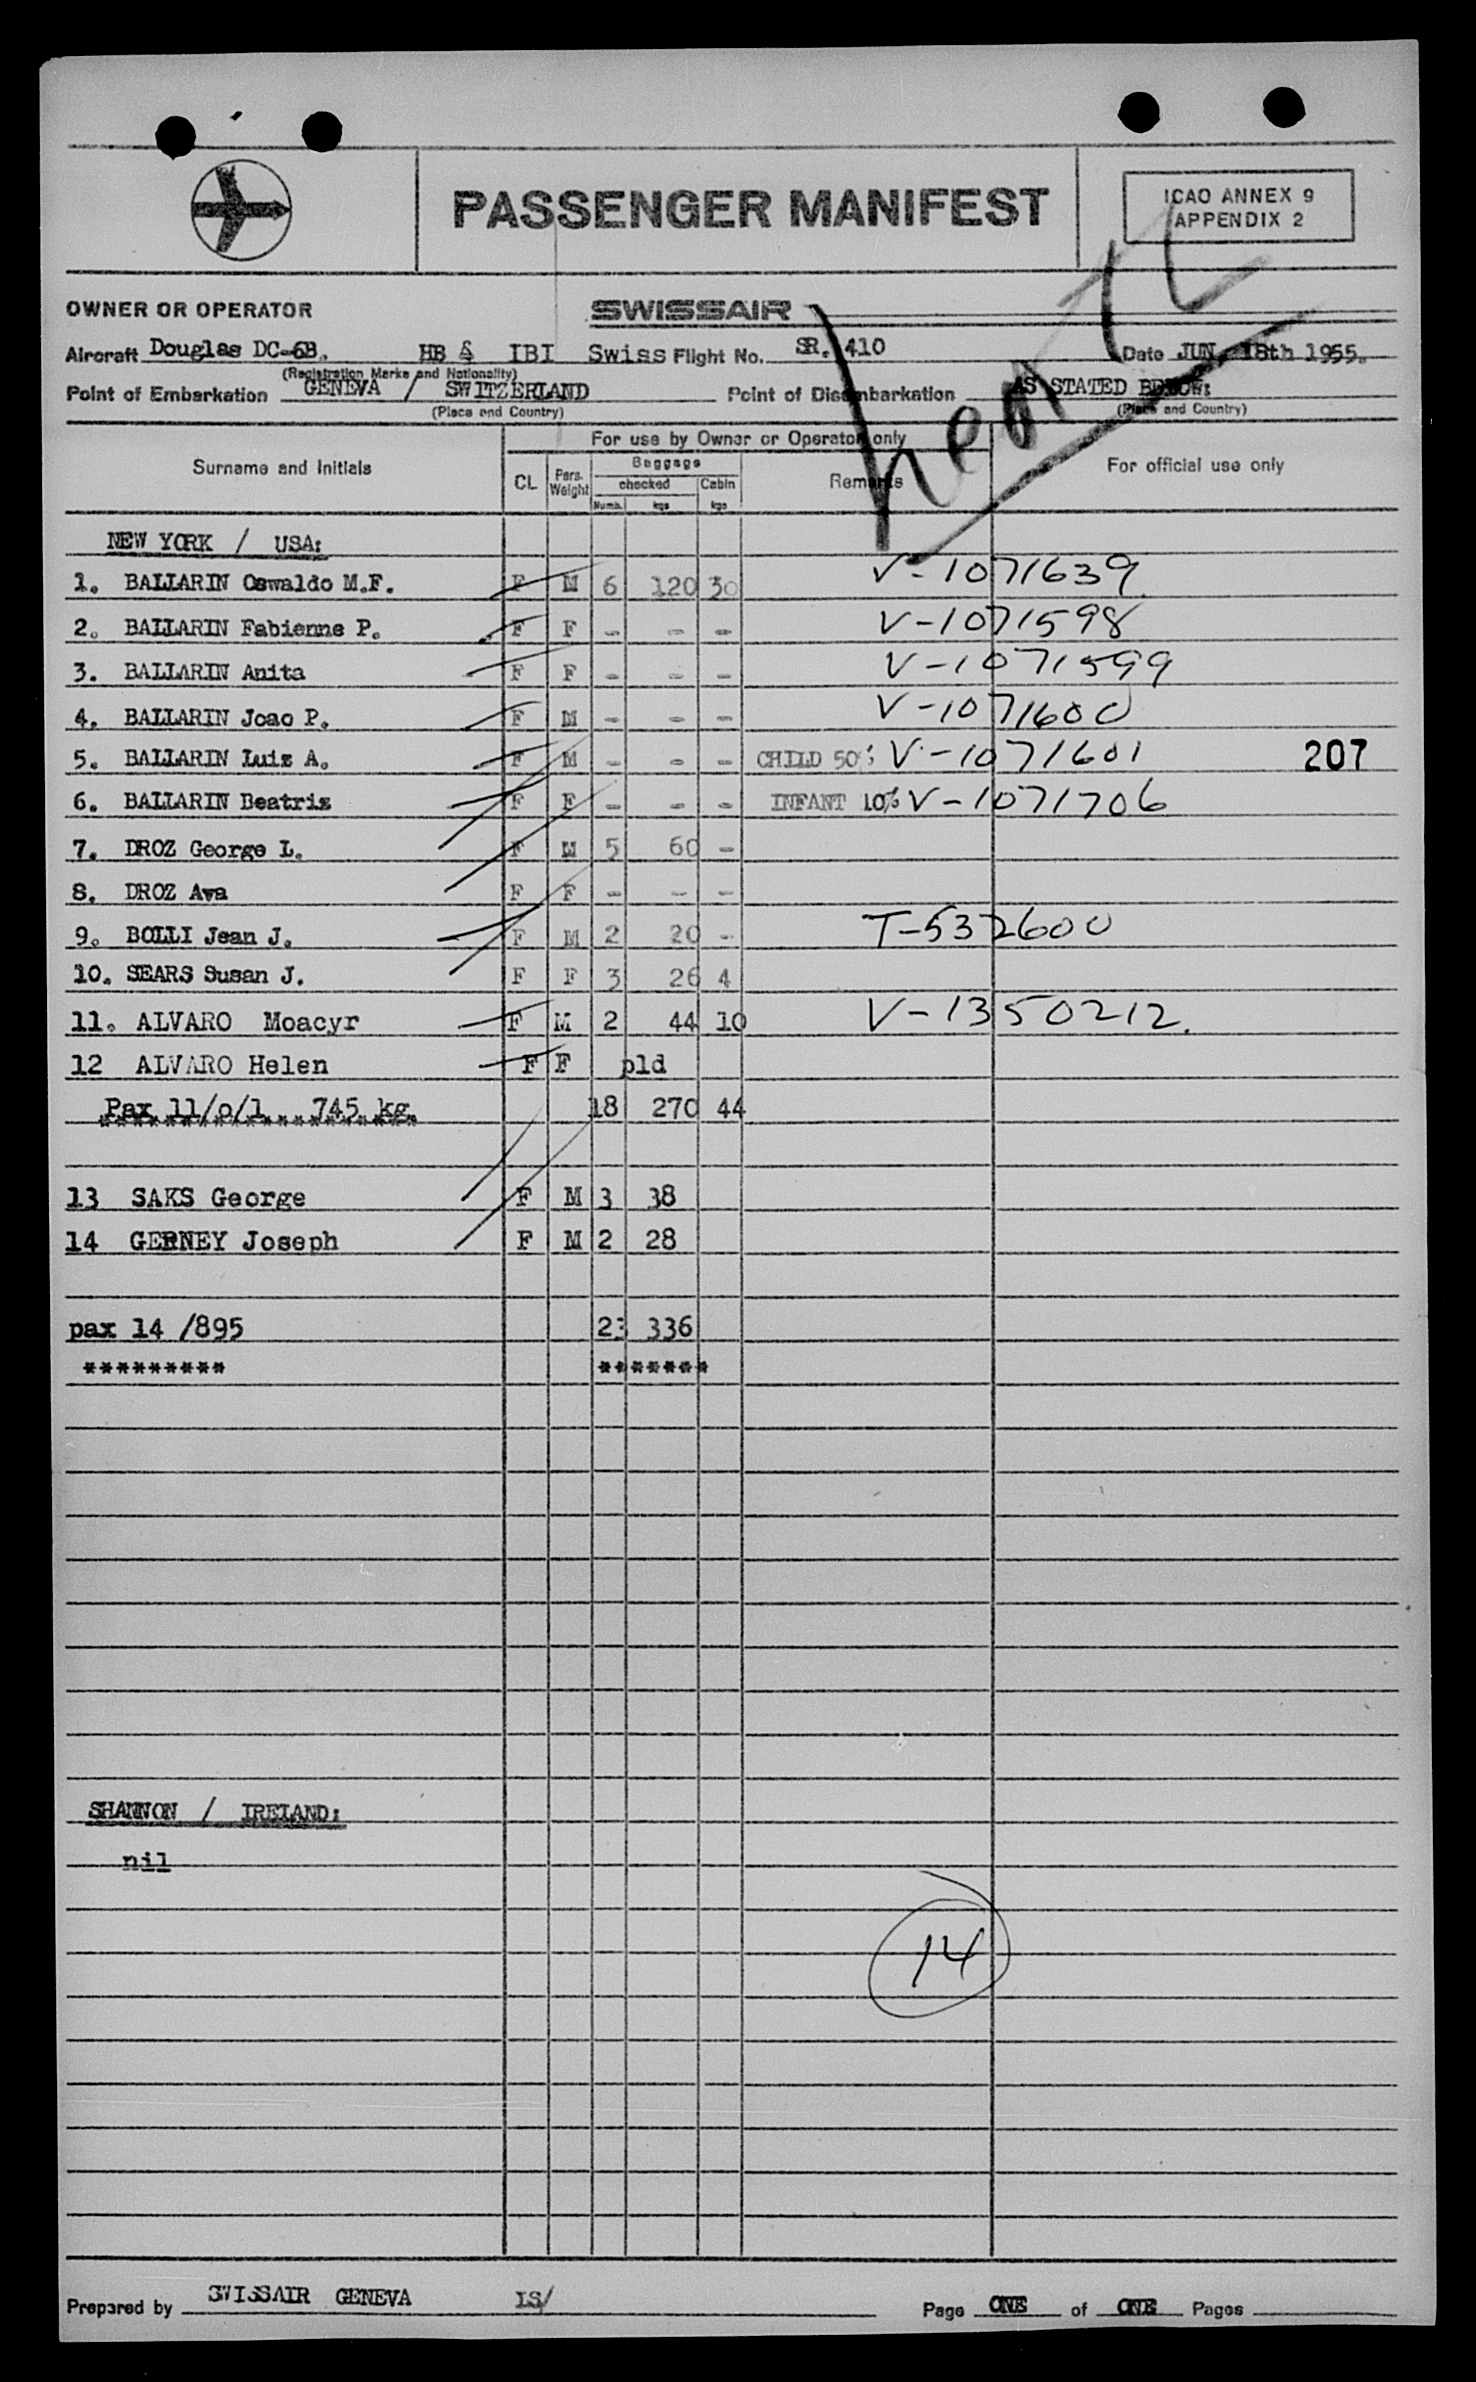 PASSENGER MANIFEST
ICAO ANNEX 9
APPENDIX 2
OWNER OR OPERATOR SWISSAIR
Aircraft Douglas DC-6B. HB & IBI Swiss Flight No. SR. 410 Date JUN. 18th 1955.
(Registration Marks and Nationality)
Point of Embarkation GENEVA / SWITZERLAND Point of Disembarkation AS STATED BELOW:
(Place and Country) (Place and Country)
For use by Owner or Operator only
Surname and Initials CL Pers. Weight Baggage Remarks For official use only
checked Cabin
Numb. kgs kgs
NEW YORK / USA:
1. BALLARIN Oswaldo M.F. F M 6 120 30 V-1071639
2. BALLARIN Fabienne P. F F - - - V-1071598
3. BALLARIN Anita F F - - - V-1071599
4. BALLARIN Joao P. F M - - - V-1071600
5. BALLARIN Luiz A. F M - - - CHILD 50% V-1071601 207
6. BALLARIN Beatriz F F - - - INFANT 10% V-1071706
7. DROZ George L. F M 5 60 -
8. DROZ Ava F F - - -
9. BOLLI Jean J. F M 2 20 - T-532600
10. SEARS Susan J. F F 3 26 4
11. ALVARO Moacyr F M 2 44 10 V-1350212.
12 ALVARO Helen F F pld
Pax 11/0/1 745 kg 18 270 44
********************
13 SAKS George F M 3 38
14 GERNEY Joseph F M 2 28
pax 14 /895 23 336
********* *******
SHANNON / IRELAND:
nil
14
Prepared by SWISSAIR GENEVA IS/ Page ONE of ONE Pages